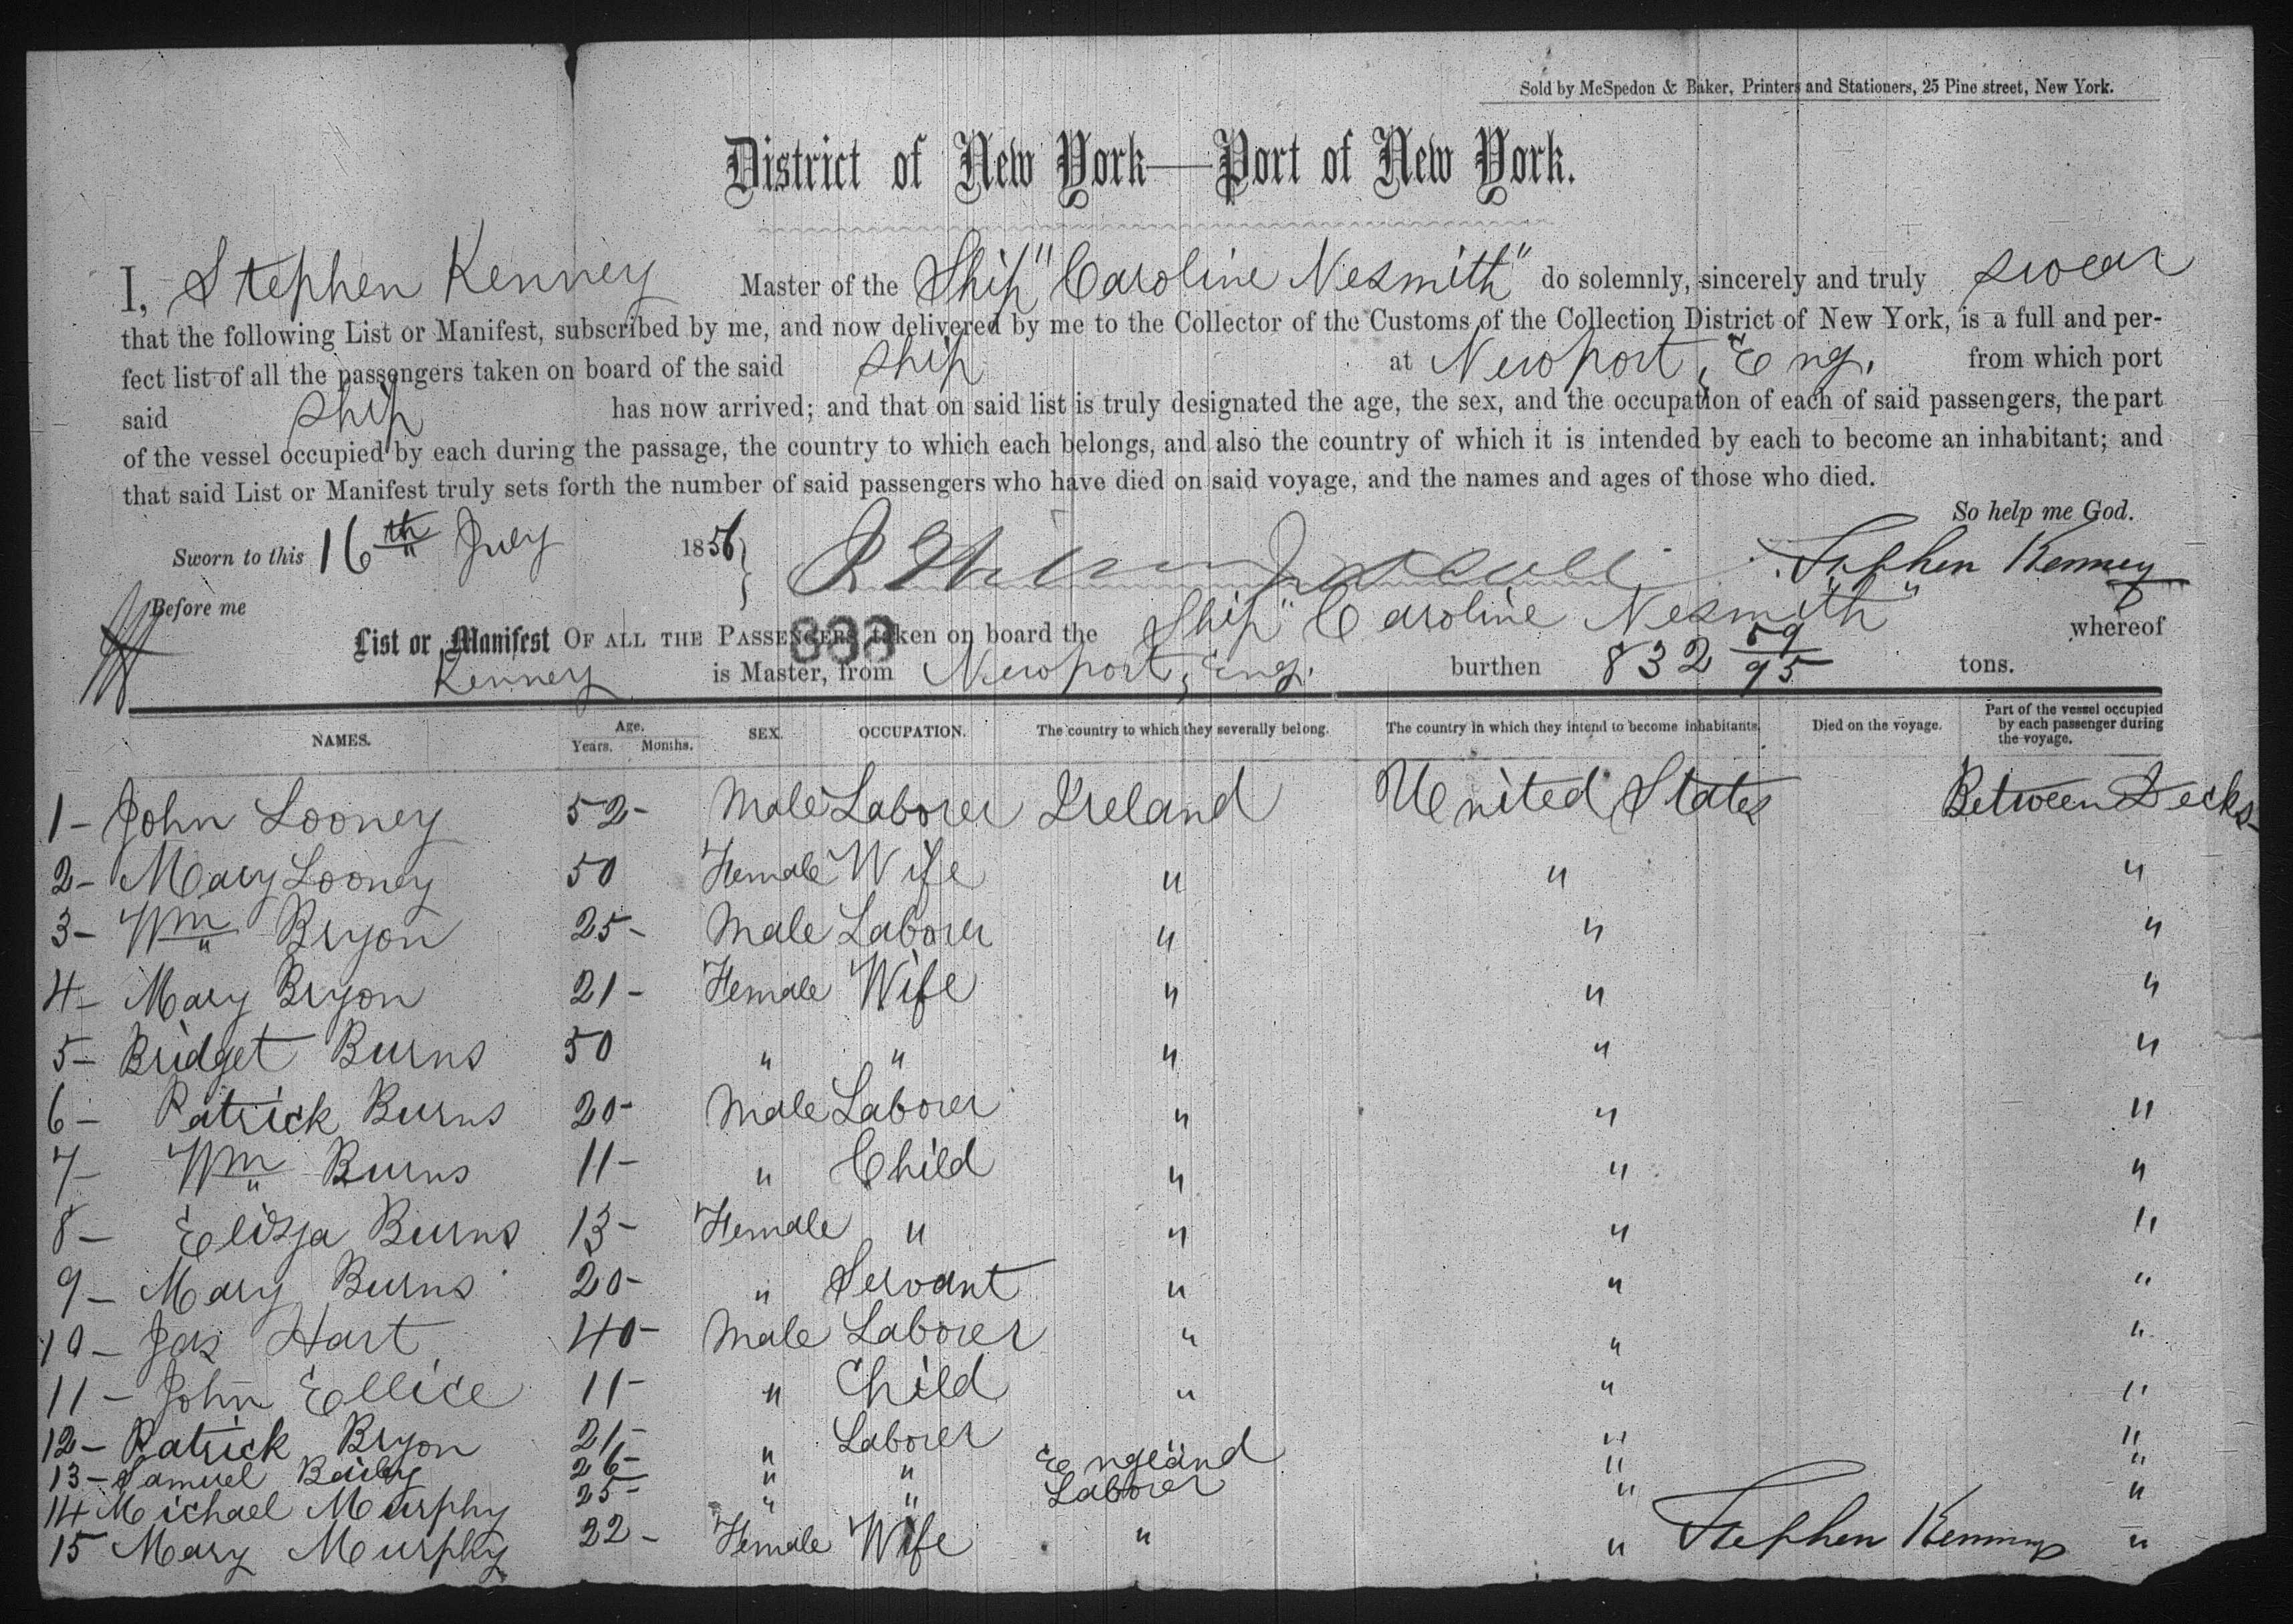 Sold by McSpedon & Baker, Printers and Stationers, 25 Pine street, New York.
District of New York—Port of New York.
I, Stephen Kenney Master of the Ship "Caroline Nesmith" do solemnly, sincerely and truly swear
that the following List or Manifest, subscribed by me, and now delivered by me to the Collector of the Customs of the Collection District of New York, is a full and per-
fect list of all the passengers taken on board of the said ship at Newport, Eng. from which port
said ship has now arrived; and that on said list is truly designated the age, the sex, and the occupation of each of said passengers, the part
of the vessel occupied by each during the passage, the country to which each belongs, and also the country of which it is intended by each to become an inhabitant; and
that said List or Manifest truly sets forth the number of said passengers who have died on said voyage, and the names and ages of those who died.
So help me God.
Sworn to this 16th July 1856 } Stephen Kenney
Before me
List or Manifest OF ALL THE PASSENGERS taken on board the Ship "Caroline Nesmith" whereof
Kenney is Master, from Newport, Eng. burthen 832 59/95 tons.
NAMES. Age. Years. Months. SEX. OCCUPATION. The country to which they severally belong. The country in which they intend to become inhabitants. Died on the voyage. Part of the vessel occupied by each passenger during the voyage.
1- John Looney 52- Male Laborer Ireland United States Between Decks-
2- Mary Looney 50 Female Wife " " "
3- Wm Bryon 25- Male Laborer " " "
4- Mary Bryon 21- Female Wife " " "
5- Bridget Burns 50 " " " " "
6- Patrick Burns 20- Male Laborer " " "
7- Wm Burns 11- " Child " " "
8- Elisza Burns 13- Female " " " "
9- Mary Burns 20- " Servant " " "
10- Jas Hart 40- Male Laborer " " "
11- John Ellice 11- " Child " " "
12- Patrick Bryon 21- " Laborer " " "
13- Samuel Baily 26- " " England " "
14 Michael Murphy 25- " " Laborer " "
15 Mary Murphy 22- Female Wife " " Stephen Kenney "